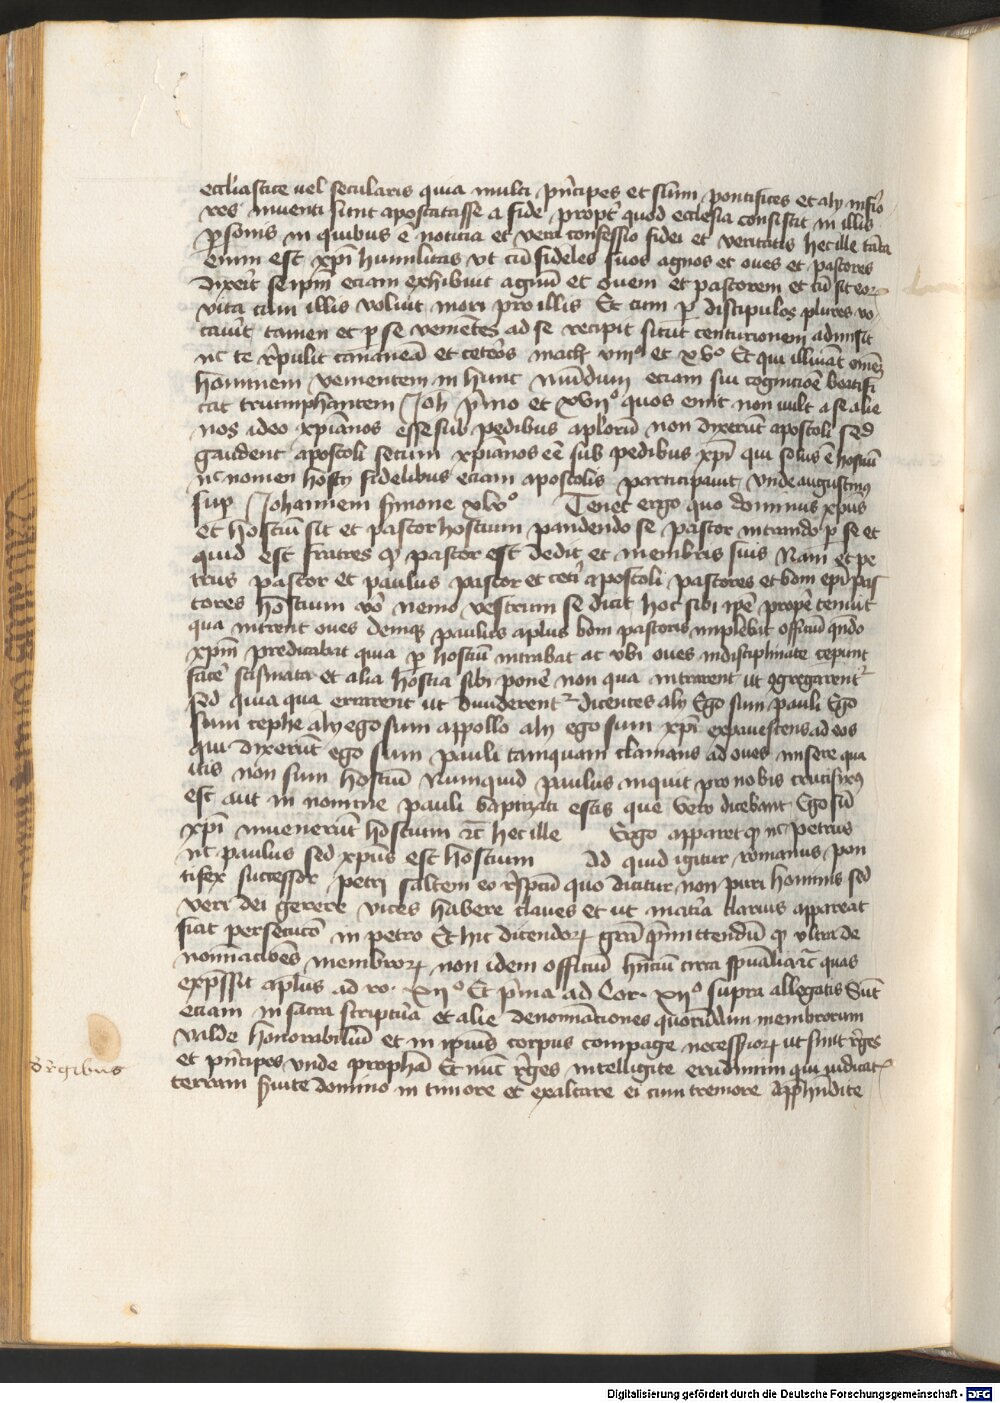 eccl'iastice uel secularis quia multi pn̄cipes et sūmi pontifices et alij infio
res inuenti sunt apostatasse a fide propt' quod ecclesia consistit in illis
psonis in quibus ē noticia et vera confessio fidei et veritatis hec ille tāta
enim est xpī humilitas vt cū fideles suos agnos et oues et pastores
dixerit seipm̄ eciam exhibuit agnū et ouem et pastorem et cū sit eoꝝ
vita cum illis voluit mori pro illis Et cum p discipulos plures vo
cauit tamen et p se venientes ad se recipit sicut centurionem admisit
nc te r̄pulit cananeā et ceteros math viiiº et xvº Et qui illuīat omēꝫ
hominem venientem in hunc mūdum eciam sui cognicioē beatifi
cat triumphantem Joh pͥmo et xviiº quos emit non uult a se alie
nos ideo xpīanos esse sub pedibus aploruꝫ non dixerūt apostoli sed
gaudent apostoli secum xpīanos eē sub pedibus xpī qui solus ē hostiū
nc nomen hostij fidelibus eciam apostolis participauit vnde augustinꝰ
sup Johannem sermone xlvº Tenet ergo quo dominus xpūs
et hostiū sit et pastor hostium pandendo se pastor intrando p se et
quid est fratres qꝫ pastor est dedit et membris suis Nam et pe
trus pastor et paulus pastor et cet'i apostoli pastores et boni epī pas
tores hostium vº nemo vestrum se dicat hoc sibi ipē propē tenuit
qua intrent oues deniqꝫ paulus aplus boni pastoris implebat officiū qn̄do
xpm̄ predicabat quia p hostiū intrabat at vbi oues indisciplinate ceperūt
face' scismata et alia hostia sibi ponē non qua intrarent ut ꝯgregarent'
sed quia qua errarent ut diuiderent' dicentes alij Ego sum pauli Ego
sum cephe alij ego sum appollo alij ego sum xpī expauescens ad eos
qui dixerūt ego sum pauli tamquam clamans ad oues misere qua
itis non sum hostiū Numquid paulus inquit pro nobis crucifixꝰ
est aut in nomine pauli baptizati estis que vero dicebant Ego sū
xpī inuenerūt hostium ⁊c hec ille Ergo apparet qꝫ nc petrus
nc paulus sed xpūs est hostium Ad quid igitur romanus pon
tifex successor petri saltem eo r̄spectu quo dicitur non puri hominis sed
veri dei gerere vices habere claues et ut mat'ia clarius appareat
fiat persecucō in petro Et hic dicendoꝝ grā pͥmittendū qꝫ vltra de
nominaciōes membroꝝ non idem officiū hn̄ciū circa spūalia ⁊c quas
expͥssit aplus ad ro. xiiº Et pͥma ad Cor. xiiº supra allegatis Sūt
eciam in sacra scriptͣa et alie denominātiones quorumdam membrorum
valde honorabiliū et in ipsius corpus compage necessioꝝ ut sunt r̄ges
et pn̄cipes vnde prophā Et nūc r̄ges intelligite erudimini qui iudicat'
terram s'uite domino in timore et exultare ei cum tremore Apprehndite
de r̄gibus
Digitalisierung gefördert durch die Deutsche Forschungsgemeinschaft - DFG